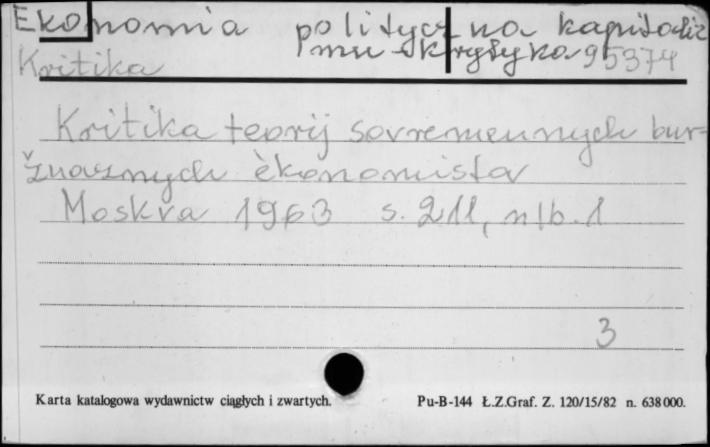 Ekonomia polityczna kapitaliz
mu - krytyka 95374
Kritika
Kritika teorij sovremennych bur-
žuaznych èkonomistov
Moskva 1963 s. 211, nlb. 1
3
Karta katalogowa wydawnictw ciągłych i zwartych.
Pu-B-144 Ł.Z.Graf. Z. 120/15/82 n. 638000.